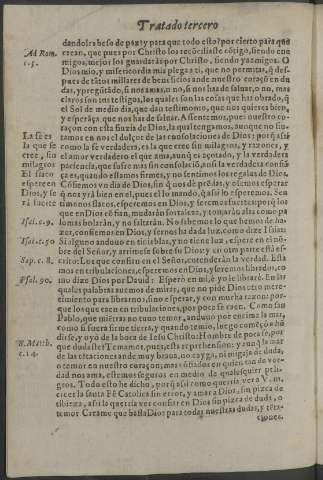 Tratado tercero
Ad Rom. c. 5.
dandoles beso de paz? y para que todo esto? por cierto para que
crean, que pues por Christo los recõciliaste cõtigo, siendo ene
migos, mejor los guardaràs por Christo, siendo ya amigos. O
Dios mio, y misericordia mia plega a ti, que no permitas, q̃ des-
pues de tãtos millares de beneficios ande nuestro coraçõ en du
das, y preguntãdo, si nos amas, o no, si nos has de saluar, o no, mas
claros son tus testigos, los quales son las cosas que has obrado, q̃
el Sol de medio dia, que dan testimonio, que nos quieres bien,
y esperãça, que nos has de saluar. Assentemos, pues nuestro co-
raçon con esta fiuzia de Dios, la qual tengamos, aunque no sin-
La fè es la que se cree, sin milagros
tamos en nos el dulçor de las consolaciones de Dios: porq̃ assi
como la fe verdadera, es la que cree sin milagros, y razones, y
el amor verdadero el que ama, aunq̃ es açotado, y la verdadera
paciencia, que sufre mas sin consolaciõ, assi la verdadera confiã
ça es, quando estamos firmes, y no sentimos los regalos de Dios.
esperè en Dios, y serà
Cõfiemos v̄o dio de Dios, sin
q̃ nos y rà bien en el, pues el lo mandò, q̃ assi lo esperemos. Sea
mos nos flacos, esperemos en Dios, y seremos fuertes: porq̃ los
que en Dios cõfian, mudaràn fortaleza, y tomaràn alas como pa
Isai. c. 9.
lomas bolaràn, y no faltaràn. Si sabemos lo que hemos de ha-
zer, confiemos en Dios, y sernos ha dada luz, como dize Isaias:
Isai. c. 50
Si alguno anduuo en tinieblas, y no tiene luz, espere en el nõ-
bre del Señor, y arrimese sobre su Dios: y en otra parte està es-
Sap. c. 8.
crito: Los que confian en el Señor, entenderàn la verdad. Esta
mos en tribulaciones, esperemos en Dios, y seremos librados, co
Psal. 90.
mo dize Dios por Dauid: Esperò en mi, è yo le librarè. En las
quales palabras auemos de mirar, que no pide Dios otro mere-
cimiento para librarnos, sino esperar, y con mucha razon: por-
que los que caen en tribulaciones, por poca fe caen. Como san
Pablo, que mientras no tuuo temor, anduuo por encima la mar,
como si fuera firme tierra, y quando temio, luego començò a hũ
dirse, y oyò de la boca de Iesu Christo: Hombre de poca fe, por
Matth. c. 14.
que dudaste? Temamos, pues, esta reprehension: y aunq̃ la mar
de las tentaciones ande muy braua, no cayga, ni migaja de duda,
o temor en nuestro coraçon; mas cõfiados en quien tan de ver-
dad nos ama, estemos seguros en medio de qualesquier peli-
gros. Todo esto he dicho, porq̃ assi como querria vea V. m.
creer la santa Fè Catolica sin error, y amar a Dios, sin pizca de
tibieza, assi la querria ver confiar en Dios sin pizca de duda, o
temor. Creame que basta Dios para todas nuestras dudas, y
ciones.